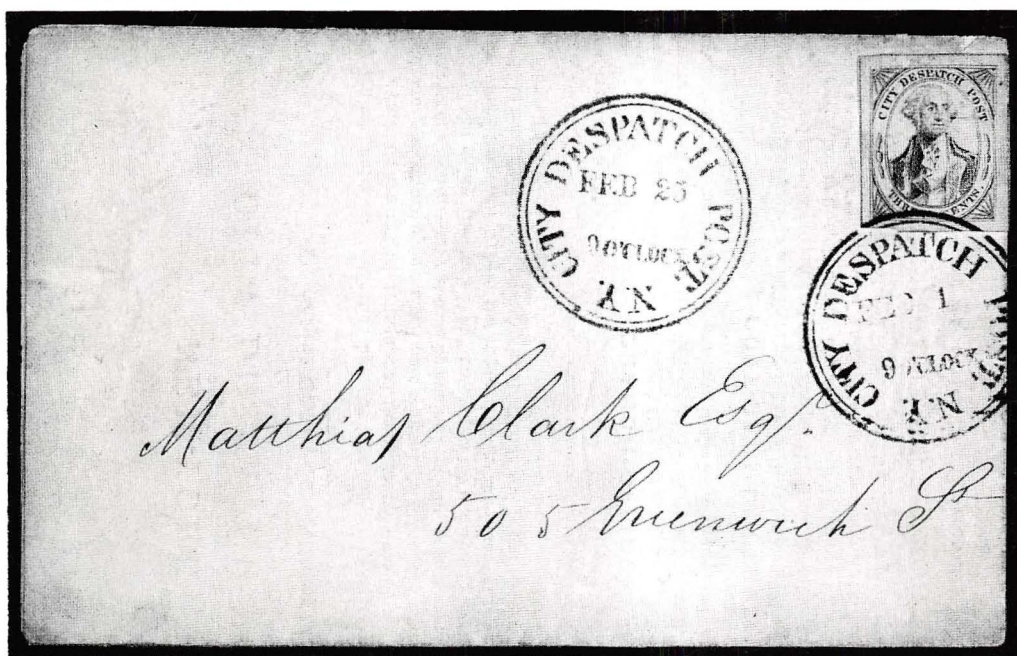 CITY DESPATCH POST
THR ENTS.
CITY DESPATCH POST. N.Y.
FEB 25
9 O'CLOCK
CITY DESPATCH POST. N.Y.
1
9 O'CLOCK
Matthias Clark Esqr.
505 Greenwich St